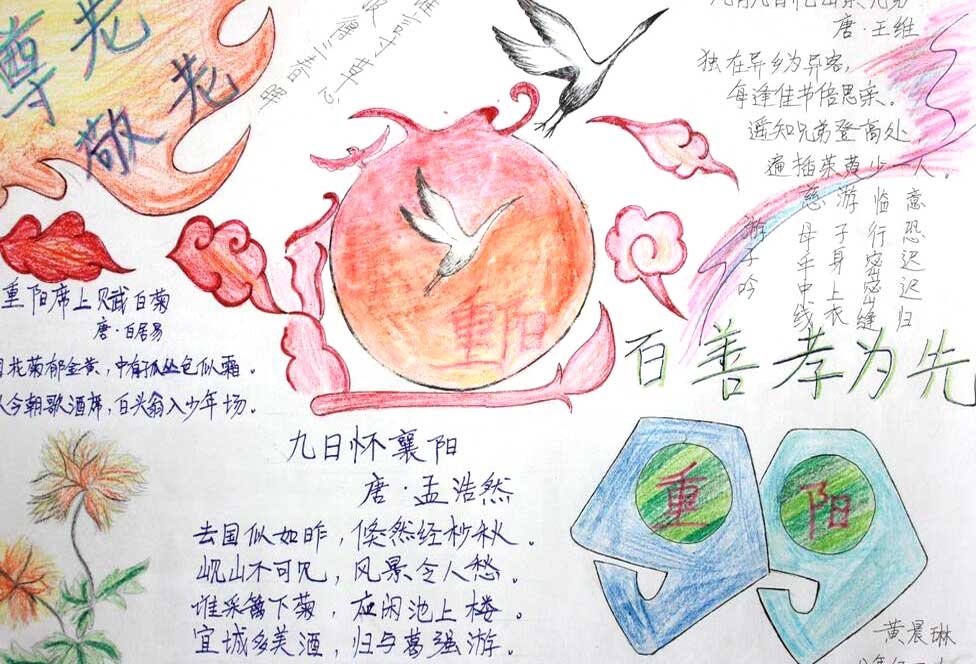 尊老
敬老
谁言寸草心
报得三春晖
九月九日忆山东兄弟
唐·王维
独在异乡为异客，
每逢佳节倍思亲。
遥知兄弟登高处，
遍插茱萸少一人。
游子吟
慈母手中线
游子身上衣
临行密密缝
意恐迟迟归
重阳席上赋白菊
唐·白居易
花菊郁金黄，中有孤丛色似霜。
今朝歌酒席，白头翁入少年场。
重阳
百善孝为先
九日怀襄阳
唐·孟浩然
去国似如昨，倏然经杪秋。
岘山不可见，风景令人愁。
谁采篱下菊，应闲池上楼。
宜城多美酒，归与葛强游。
重
阳
黄晨琳